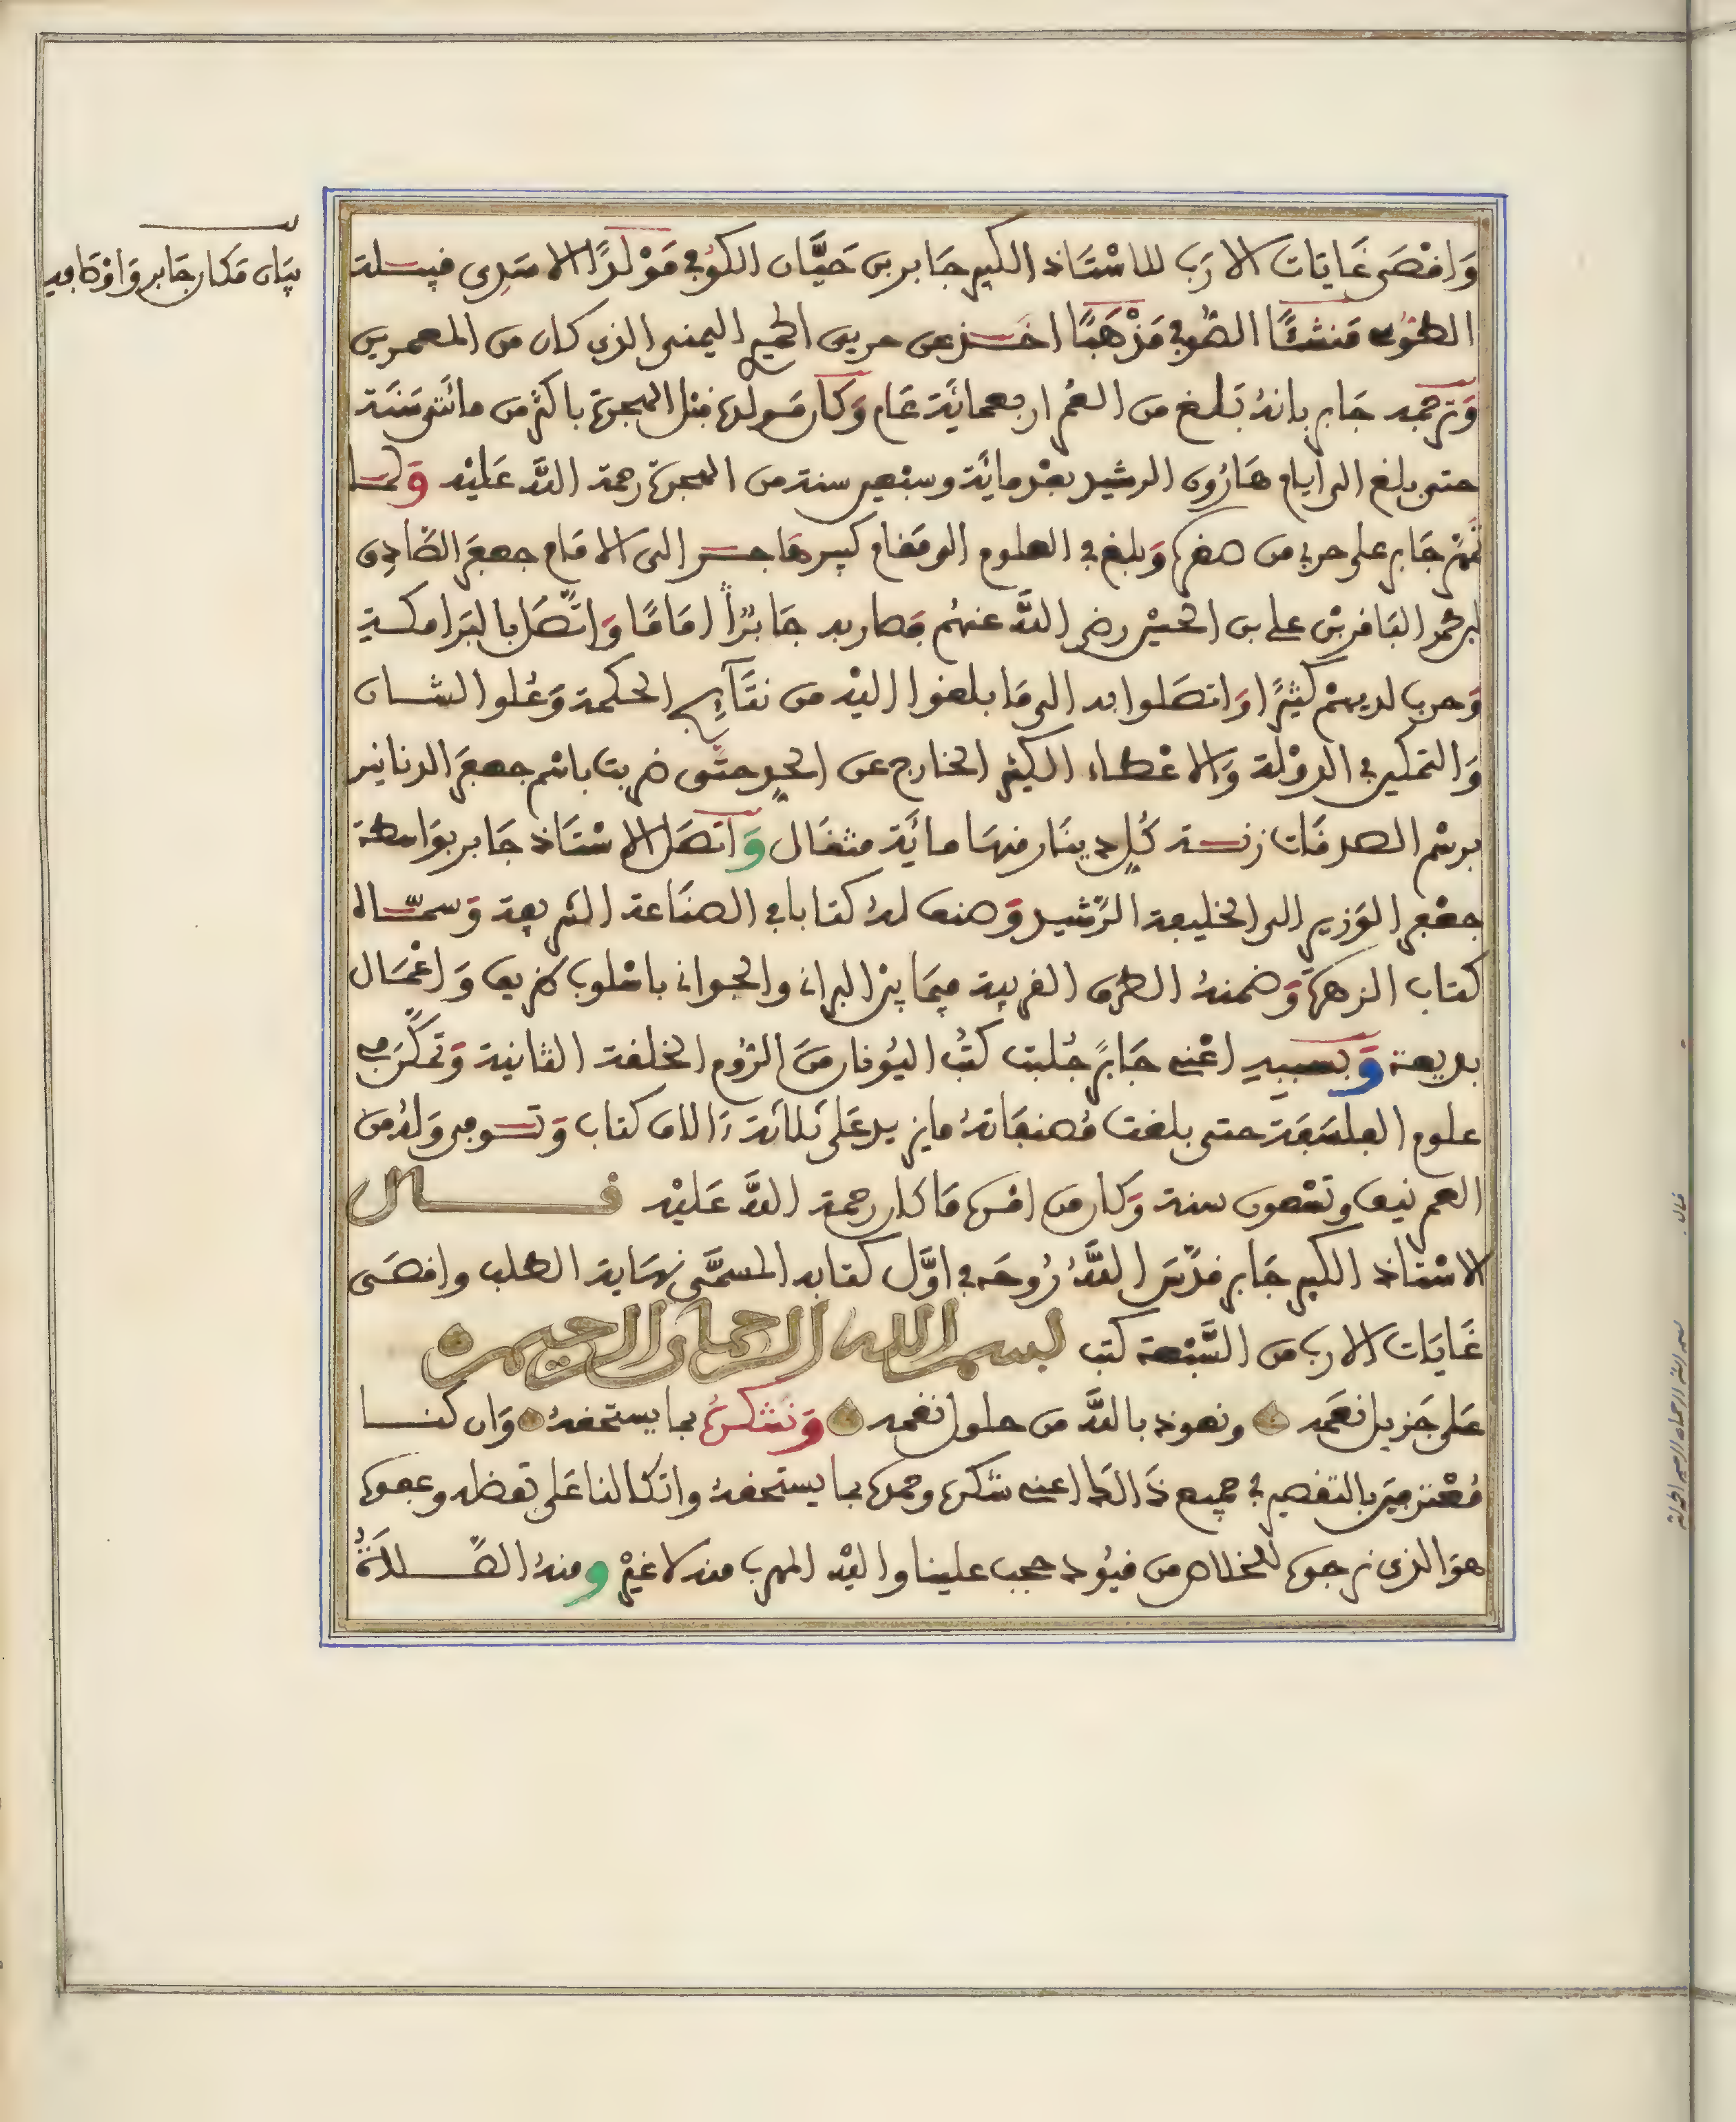 بيان مكان جابر واوقاته
وَاقْصَى غَايَات الارَب للاسْتَاذ الكبير جَابر بن حَيَّان الكوفي مَوْلدًا الا سَدِى قبيلة
الطوسى مَنشئًا الصّوفي مَذْهَبًا اخذ عن حربى الحميرى اليمنى الذى كان من المعمرين
وَترجمه جَابر بانهُ بَلغ من العُمر اربعمائَة عَام وَكان مَولده قبل الهجرة باكثر من مائتى سَنَة
حتى بلغ الى أيام هَارُون الرشيد بعْد مائَة وسبْعين سنة من الهجرة رحمة اللَّه عَليْه وَلما
تمهر جَابر على حربى من صغره وَبلغ في العلوم الى مَقام كبير هَاجر الى الامَام جعفَر الصَّادِق
ابن محمد البَاقر بْن على بن الحسيْن رضى اللَّه عنهُم فصار به جَابرًا امَامًا وَاتَّصَل بالبَرامكة
وَحرب لديهمْ كثيْرًا وَاتصَلوا به الى مَا بلغوا اليْه من نتَآيج الحكمة وَعُلو الشان
وَالتمكين في الدوْلة وَالاعْطاء الكثير الخارج عن الحد حتَّى ضربت باسْم جعفَر الدنانير
برسْم الصدقَات زنة كُل دينَار منهَا مائَة مثقَال وَاتصَل الاسْتَاذ جَابر بوَاسطة
جعْفر الوَزير الى الخليفة الرَّشيد وَصنف لهُ كتابا في الصنَاعة الشريفة وَسمّاه
كتاب الزهرة وَضمنهُ الطرق الغريبة فيمَا بين البراني والجواني باسْلوب ظريف وَاعْمَال
بديعة وَبسببه اعْنى جَابرً جُلبت كتُب اليُونان منَ الرُوم الخلفة الثانية وَتمكَّن في
علوم الفلسَفَة حتى بلغت مُصنفاتهُ ما يزيد عَلى ثلاثَة ءَالاف كتاب وَتوفى وَلهُ من
العمر نيف وتسْعون سنة وَكان من امْره مَا كان رحمة اللَّه عَليْه قال
الاسْتَاذ الكبير جَابر قدَّسَ اللَّهُ رُوحَه في اوَّل كتابه المسمَّى نهَاية الطلب واقصَى
غَايَات الارب من السَّبْعة كتب بسم الله الرحمان الرحيم
عَلى جَزيل نعَمه ونعوذ باللَّه من حلول نقمه وَنَشكرهُ بما يستحقهُ وَان كنا
مُعْترفيَن بالتقصير في جميع ذَالك اعنى شكره وحمده بما يستحقهُ واتكالنا عَلى تفضله وعفوه
هوَ الذى نرجوه للخلاص من قيُود حجب علينا واليْه المهرب منه لا غيْر ومنهُ الصَّلاَةُ
قال
بسم الله الرحمان الرحيم الحمد لله